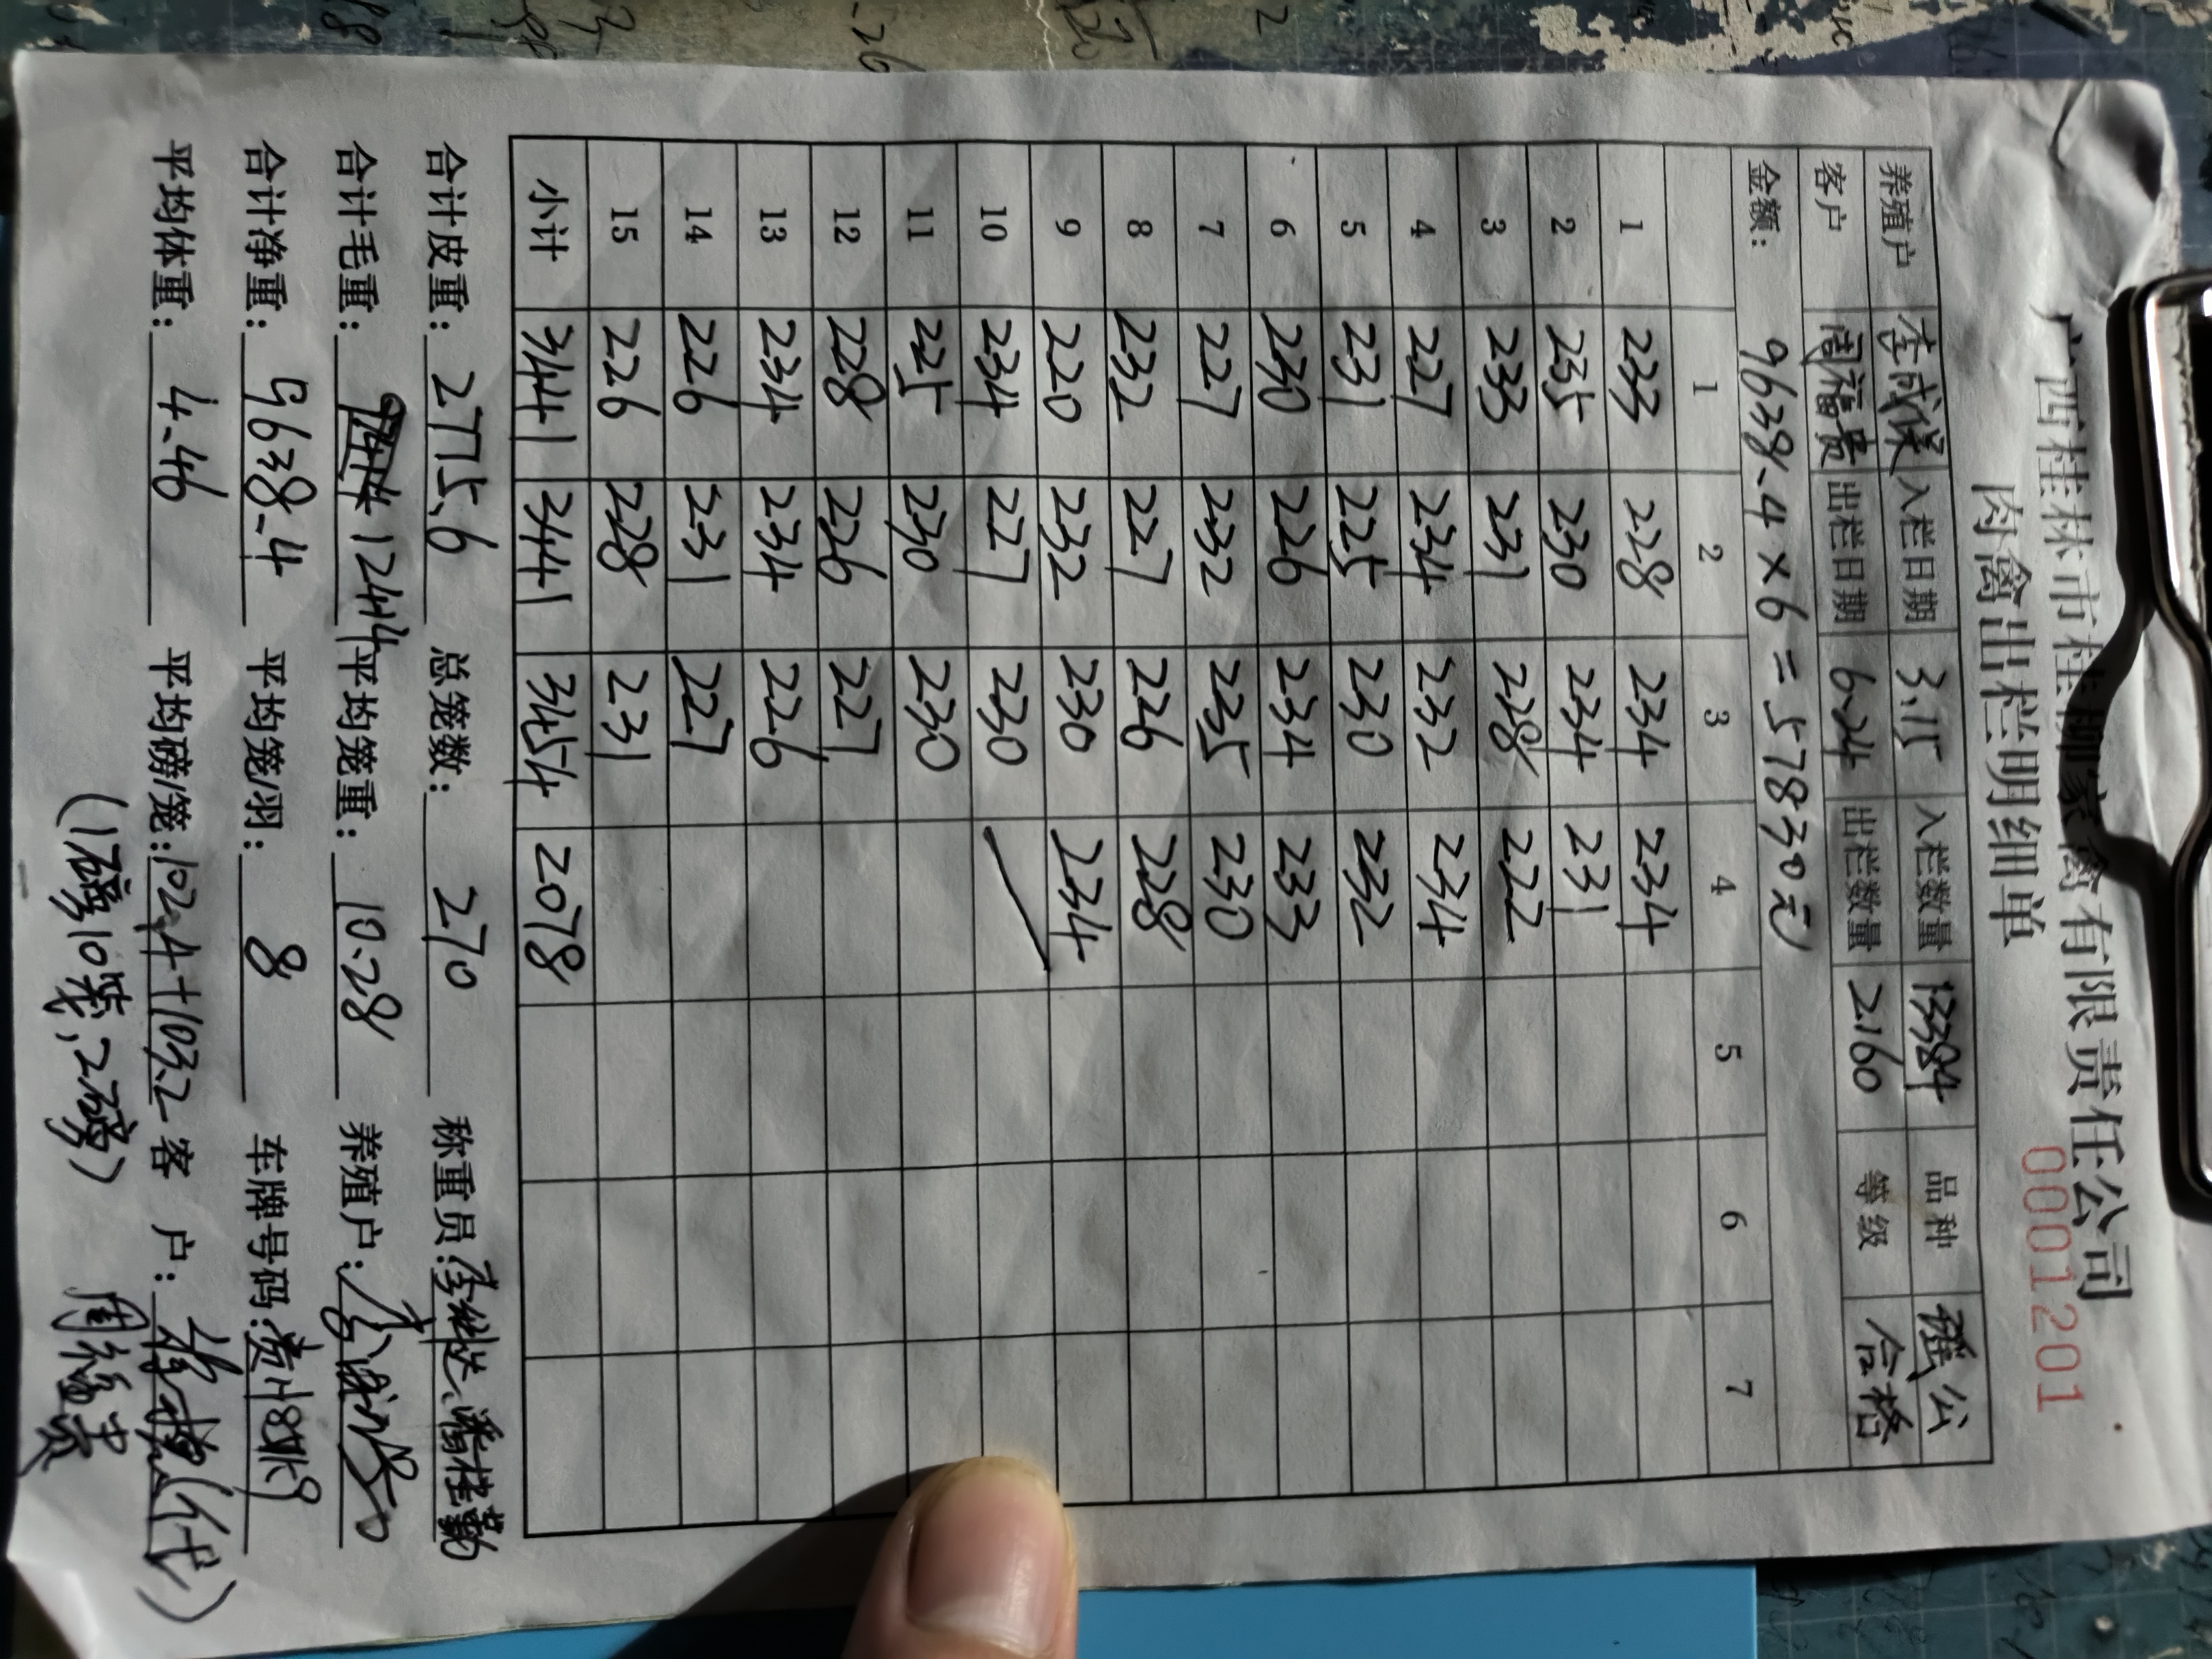 广西桂林市桂柳家禽有限责任公司
肉禽出栏明细单
00012201
养殖户 李成保 入栏日期 3.15 入栏数量 13384 品种 瑶公
客户 周福贵 出栏日期 6.24 出栏数量 2160 等级 合格
金额: 9638.4×6=57830元
1 2 3 4 5 6 7
1 233 228 234 234
2 235 230 234 231
3 233 231 228 222
4 227 234 232 234
5 231 225 230 232
6 230 226 234 233
7 227 232 235 230
8 232 227 226 228
9 220 232 230 234
10 234 227 230
11 225 230 230
12 228 226 227
13 234 234 226
14 226 231 227
15 226 228 231
小计 3441 3441 3454 2078
合计皮重: 2775.6 总笼数: 270 称重员: 潘桂勤
合计毛重: 12414 平均笼重: 10.28 养殖户: 李成保
合计净重: 9638.4 平均笼/羽: 8 车牌号码:
平均体重: 4.46 平均磅/笼: 102.4+103.2 客 户: (代)
(1磅10笼,2磅) 周福贵